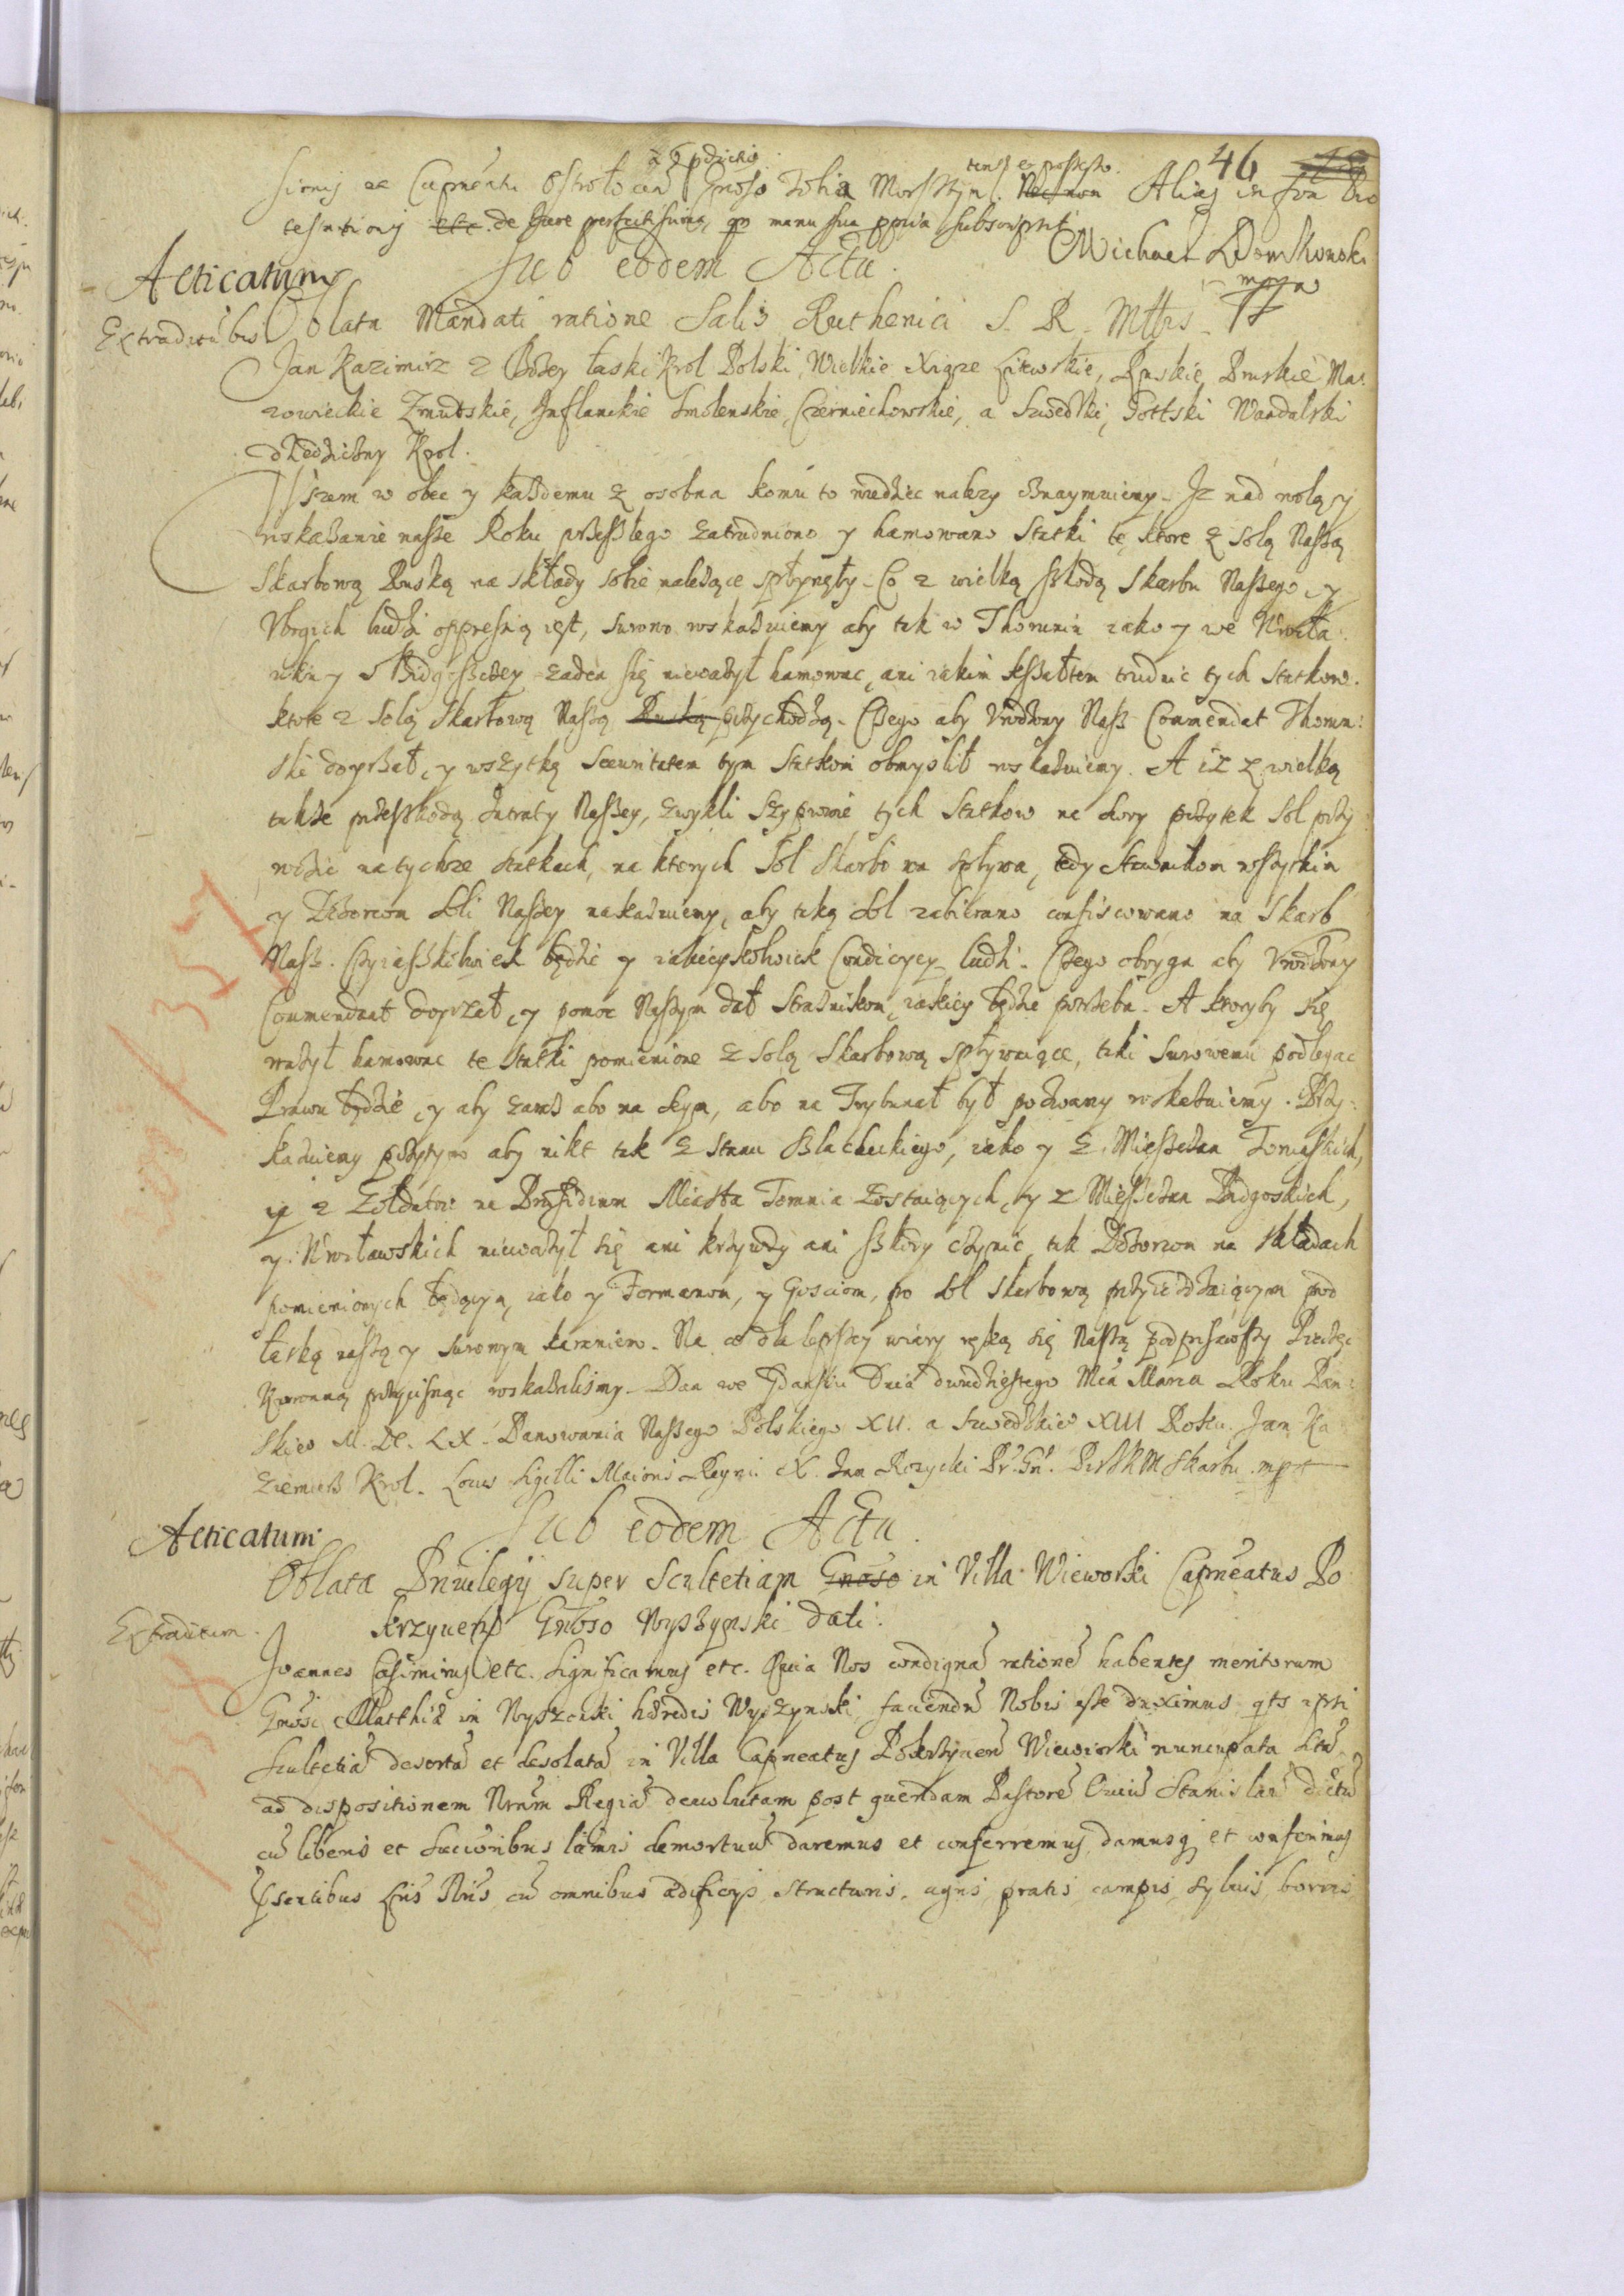 46
sionis ac Capneatu Ostroło Gnoso Tobia Morsstyn. Necnon Alias in
testationij etc. de Jure perfectissimo, manu sua ppria subscripsit
Michael
mppa
Acticatum Sub eodem Actu.
Extraditu bis Oblata Mandati ratione Salis Ruthenici S. R. Mttis
Jan Kazimirz z Bożey łaski Krol Polski, Wielkie Xiąze Litewskie, Ruskie, Pruskie Ma:
zowieckie Zmudskie, Inflanckie Smolenskie, Czerniechowskie, a Szwedski, Gottski Wandalski
dziedziczny Krol.
Wszem w obec y każdemu z osobna komu to wiedziec nalezy oznaymuiemy. Iz nad wolą y
wskazanie nasze Roku przeszlego zatrudniono y hamowano Statki te, ktore z solą Naszą
Skarbową Ruską na składy sobie należące spłynęły. Co z wielką szkodą Skarbu Naszego, y
Vbogich ludzi oppresią iest, surowo wskazuiemy aby tak w Thoruniu iako y we Włocła:
wku y w Bidgoszczey zaden się nieważył hamowac, ani iakim kształtem trudnic tych Statkow.
ktore z solą Skarbową Naszą Ruską przychodzą. Czego aby Vrodzony Nasz Commendat Thorun:
ski doyrzał, y wszytką Securitatem tym Statkom obmyslił wskazuiemy. A iż z wielką
także przeszkodą Intraty Naszey, zwykli Szyprowie tych Statkow na swoy pożytek Sol przy
wozic na tychze statkach, na ktorych Sol Skarbowa spływa, tedy Strażnikom wszytkim
y Dozorcom Soli Naszey nakazuiemy, aby taką Sol zabierano confiscowano na Skarb
Nasz. Czyiaszkolwiek będzie y iakieyskolwiek Condiciey ludzi. Czego oboyga aby Vrodzony
Commendant doyrzał, y pomoc Naszym dał Strażnikom, iakiey będzie potrzeba. A ktoryby się
ważył hamowac te statki pomienione z solą Skarbową spływaiące, taki surowemu podlegac
Prawu będzie, y aby zaraz abo na Seym, abo na Trybunał był pozwany wskazuiemy. Przy:
kazuiemy przytym aby nikt tak z stanu szlacheckiego, iako y z Mieszczan Toruńskich,
y z Zołdatow na Praesidium Miasta Torunia zostaiących, y z Mieszczan Bidgoskich,
y Włocławskich nieważył się ani krzywdy ani szkody czynic, tak Dozorcom na składach
pomienionych będącym, iako y Formanom, y Gosciom, po Sol Skarbową przyieżdżaiącym pod
łaską naszą y surowym karaniem. Na co dla lepszey wiary ręką się Naszą podpisawszy Pieczęć
Koronną przycisnąc wskazalismy. Dan we Gdansku Dnia dwudziestego Mca Marca Roku Pan:
skieo M. DC. LX. Panowania Naszego Polskiego XII. a Szwedzkieo XIII Roku. Jan Ka
zimierz Krol. Locus Sigilli Maioris Regni. X. Jan Rozycki Skarbu mp
Acticatum Sub eodem Actu.
Oblata Priuilegij super Scultetiam Gnoso in Villa Wieworki Capneatus Po
krzyuen Gnoso Wyszynski dati.
Extraditum.
Joannes Casimirus etc. Significamus etc. Quia Nos condigna ratione habentes meritorum
Gnosi Matthiae in haeredis Wyszynski, faciendu Nobis esse duximus qts ipsi
Scultetia deserta et desolata in Villa Capneatus Pokrzyuen Wieworki nuncupata
ad dispositionem Nram Regia deuolutam post quendam Pastore Ouiu Stanislau dictu
cu liberis et Successoribus demortuu daremus et conferremus, damusq et conferimus
psentibus Lris Nris, cu omnibus aedificijs structuris, agris, pratis, campis, syluis, borris